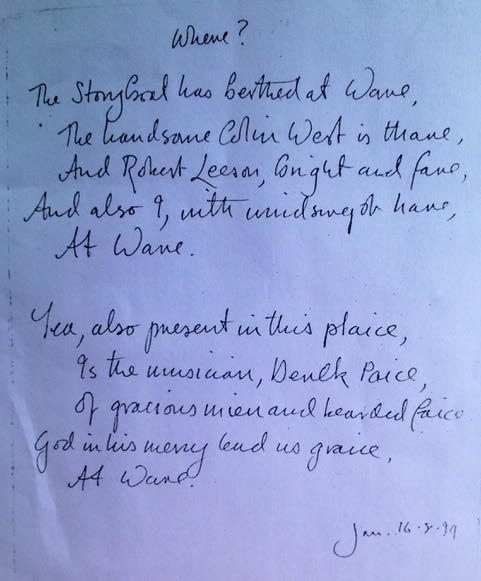 Where?
The StoryBoat has berthed at Ware,
The handsome Colin West is thare,
And Robert Leeson, bright and fare,
And also I, with windswept hare,
At Ware.
Yea, also present in this plaice,
Is the musician, Derek Paice,
Of gracious mien and bearded faice
God in his mercy lend us graice,
At Ware.